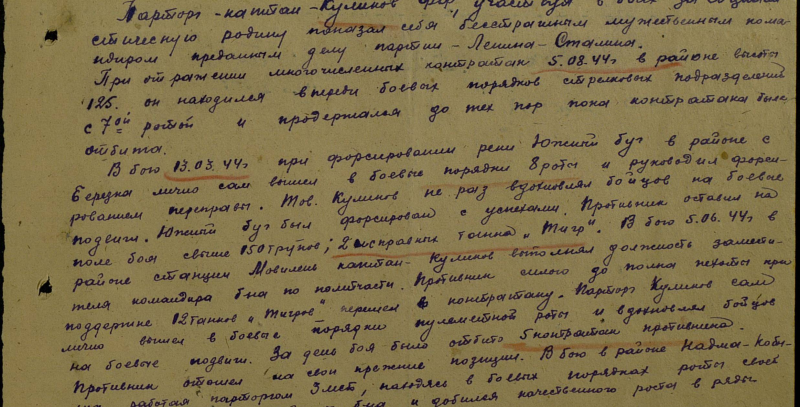 Парторг - капитан - Куликов фио участвуя в боях за социали
стическую родину показал себя бесстрашным мужественным кома-
ндиром преданным делу партии - Ленина - Сталина.
При отражении многочисленных контратак 5.08.44г в районе высоты
125. он находился впереди боевых порядков стрелковых подразделений
с 7ой ротой и продержался до тех пор пока контратака была
отбита.
В бою 13.03.44г при форсировании реки Южный буг в районе с
Березка лично сам вышел в боевые порядки 8 роты и руководил форси-
рованием переправы. Тов. Куликов не раз вдохновлял бойцов на боевые
подвиги. Южный буг был форсирован с успехами. Противник оставил на
поле боя свыше 150 трупов; 2 исправных танка „Тигр". В бою 5.06.44г в
районе станции Мовилень капитан - Куликов выполнял должность замести-
теля командира б-на по политчасти. Противник силою до полка пехоты при
поддержке 12 танков „Тигров" перешел в контратаку. Парторг Куликов сам
лично вышел в боевые порядки пулеметной роты и вдохновлял бойцов
на боевые подвиги. За день боя было отбито 5 контратак противника.
Противник отошел на свои прежние позиции. В бою в районе
работая парторгом 3 мсб, находясь в боевых порядках роты своей
и добился качественного роста в ряды